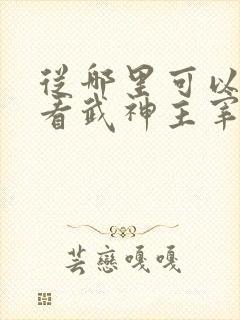 从哪里可以
看武神主宰
芸戀嘎嘎